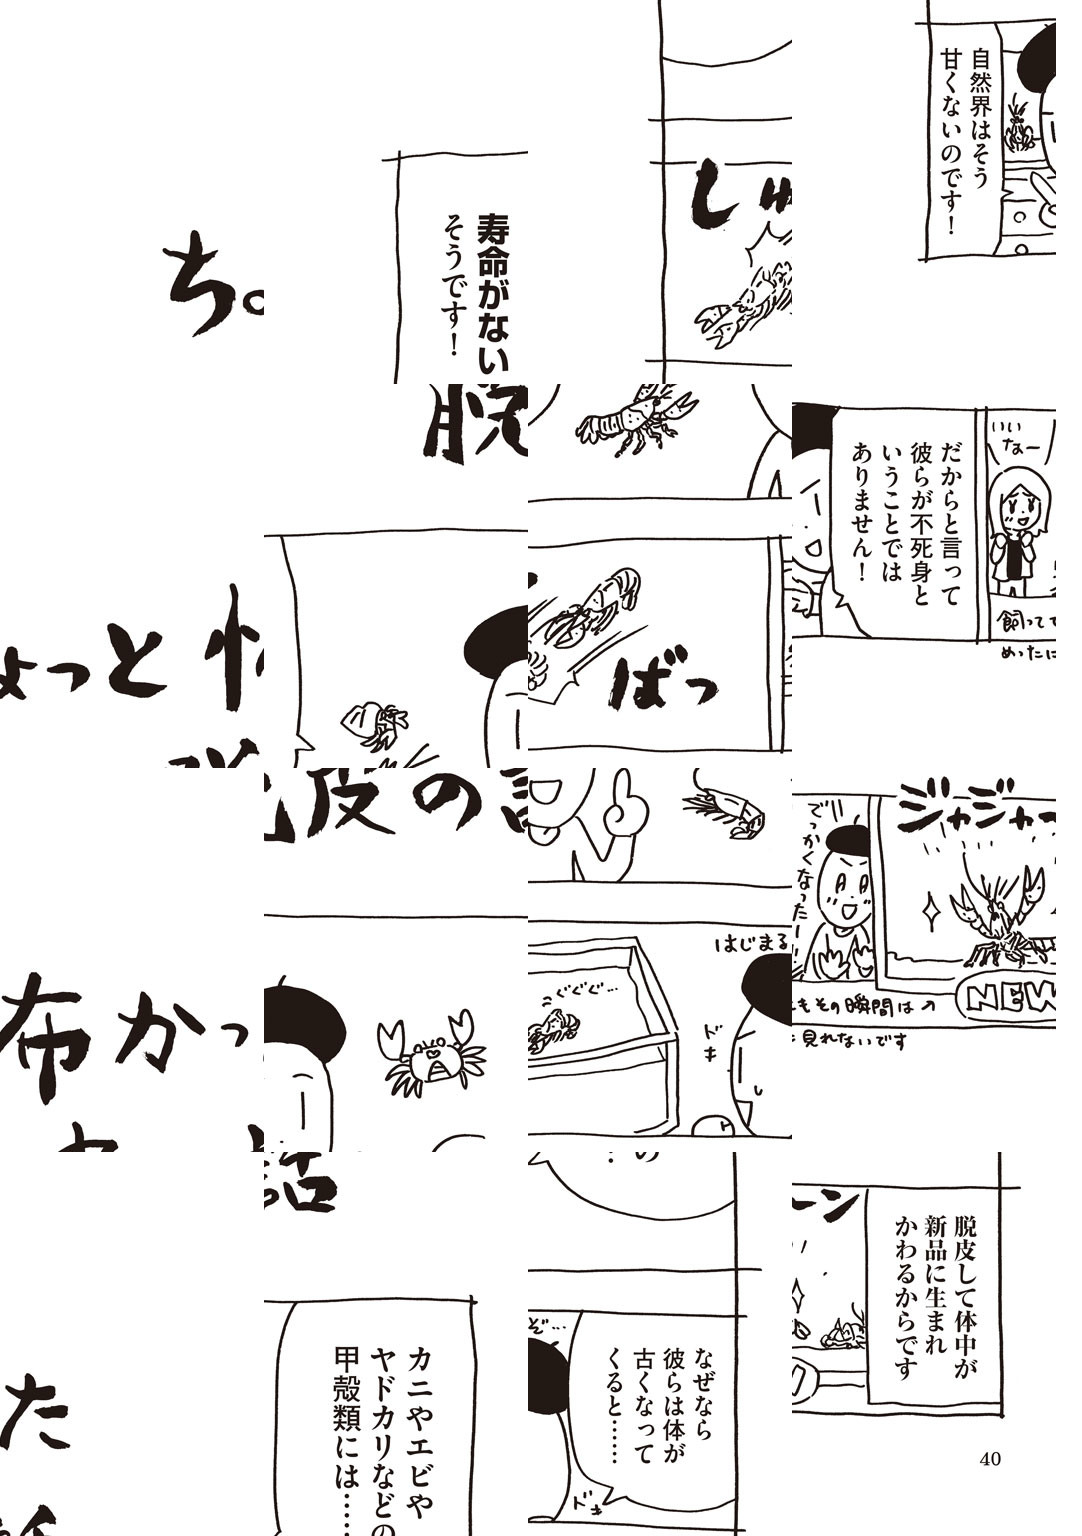 ちょっと怖かった
脱皮の話
カニやエビや
ヤドカリなどの
甲殻類には……
寿命がない
そうです！
なぜなら
彼らは体が
古くなって
くると……
はじまる
ぞ…
ぐぐぐ…
ドキ
ドキ
しゅ
ばっ
ジャジャーーン
でっかくなったー!!
NEW
脱皮して体中が
新品に生まれ
かわるからです
いい
なー
飼ってて
もその瞬間は
めったに
見れないです
だからと言って
彼らが不死身と
いうことでは
ありません！
自然界はそう
甘くないのです！
40